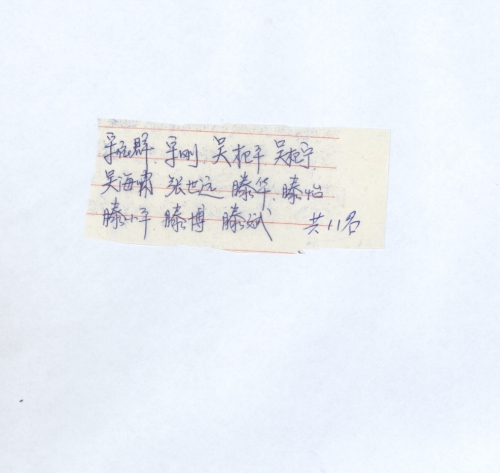 平 群、平刚、吴 平 吴 宁、
吴海啸 张世远 滕华、滕怡
滕小平、滕博 滕斌 共11名